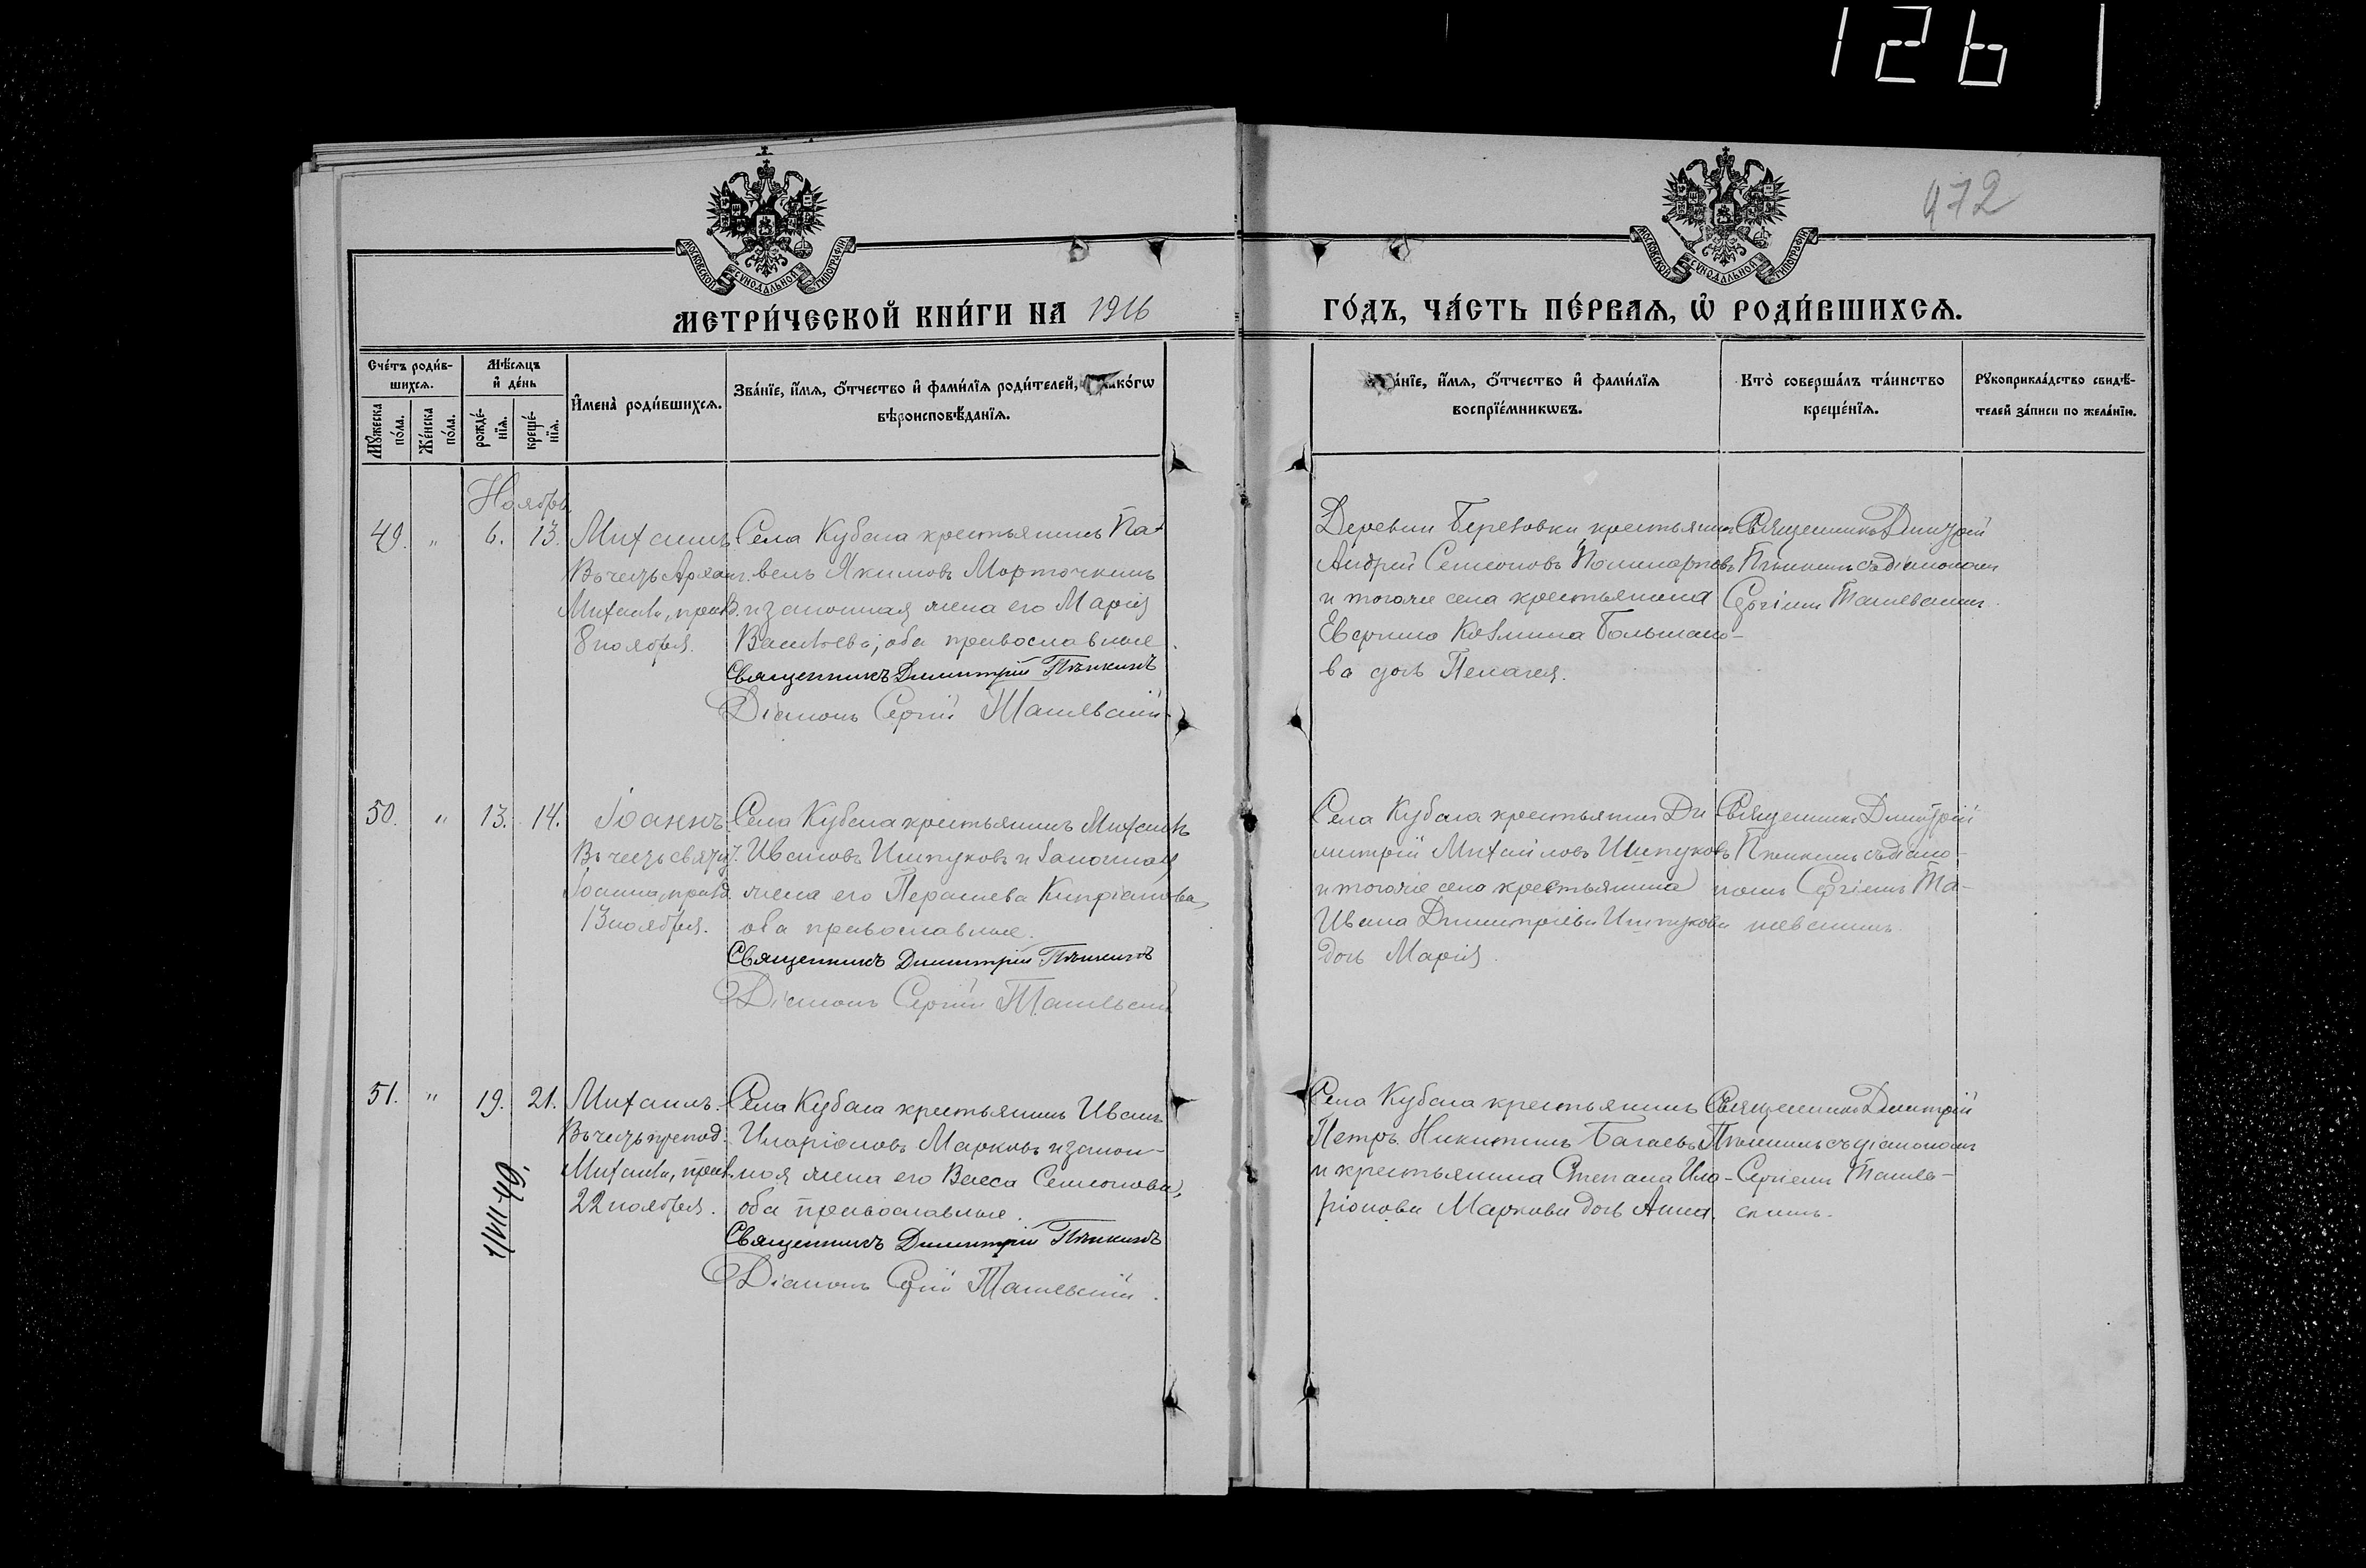 1261
972
МОСКОВСКОЙ СѴНОДАЛЬНОЙ ТИПОГРАФІИ
МОСКОВСКОЙ СѴНОДАЛЬНОЙ ТИПОГРАФІИ
МЕТРИ́ЧЕСКОЙ КНИ́ГИ НА 1916
ГО́ДЪ, ЧА́СТЬ ПЕ́РВАЯ, Ѡ҆ РОДИ́ВШИХСЯ.
Сче́тъ роди́в-
шихся.
Мѣ́сяцъ
и҆ де́нь
Мꙋ́жеска по́ла.
Же́нска по́ла.
рожде́-нїя.
креще́-нїя.
И҆мена̀ роди́вшихся.
Зва́нїе, и҆́мя, ѻ҆́тчество и҆ фами́лїя роди́телей, како́гѡ
вѣроисповѣ́данїя.
а́нїе, и҆́мя, ѻ҆́тчество и҆ фами́лїя
воспрїе́мникѡвъ.
Кто̀ соверша́лъ та́инство
креще́нїя.
Рꙋкоприкла́дство свидѣ́-
телей за́писи по жела́нїю.
Ноябрь
49. " 6. 13. Михаилъ
Въ честь Арханг.
Михаила, празд.
8 ноября.
Села Кубаса крестьянинъ Па-
велъ Якимовъ Морточкинъ
и законная жена его Марія
Васильева; оба православные.
Священникъ Димитрій Пѣнкинъ
Діаконъ Сергій Ташевскій
Деревни Березовки крестьянин
Андрей Семеновъ
и тогоже села крестьянина
Козмина
ва дочь Пелагея.
Священникъ Димитрій
Пѣнкинъ съ діакономъ
Сергіемъ Ташевскимъ.
50. " 13. 14. Іоаннъ.
Въ честь святит.
Іоанна, празд.
13 ноября.
Села Кубаса крестьянинъ Михаилъ
Ивановъ Ишпуковъ и законная
жена его Параскева Кипріанова,
оба православные.
Священникъ Димитрій Пѣнкинъ
Діаконъ Сергій Ташевскій
Села Кубаса крестьянин Ди
митрій Михайловъ Ишпуковъ
и тогоже села крестьянина
Ивана Димитріева Ишпукова
дочь Марія.
Священникъ Димитрій
Пѣнкинъ съ діако-
номъ Сергіемъ Та-
шевскимъ.
51. " 19. 21. Михаилъ.
Въ честь препод.
Михаила, празд.
22 ноября.
1/VII-49.
Села Кубаса крестьянинъ Иванъ
Иларіоновъ Марковъ и закон-
ная жена его Васса Семенова,
оба православные.
Священникъ Димитрій Пѣнкинъ
Діаконъ Сергій Ташевскій.
Села Кубаса крестьянинъ
Петръ Никитинъ Багаевъ
и крестьянина Степана Ила-
ріонова Маркова дочь Анна.
Священникъ Димитрій
Пѣнкинъ съ діакономъ
Сергіемъ Ташев-
скимъ.